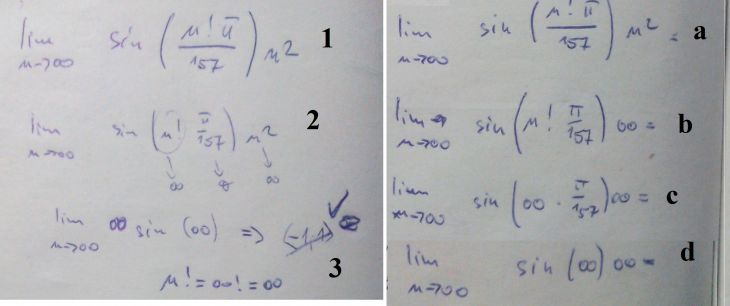 lim n→∞ sin (n! π / 157) n² 1
lim n→∞ sin (n! π/157) n² 2
↓ ↓ ↓
∞ ∞
lim n→∞ ∞ sin (∞) => (-1,1) ∞
n! = ∞! = ∞ 3
lim n→∞ sin (n! π / 157) n² = a
lim n→∞ sin (n! π/157) ∞ = b
lim n→∞ sin (∞ · π/157) ∞ = c
lim n→∞ sin (∞) ∞ = d